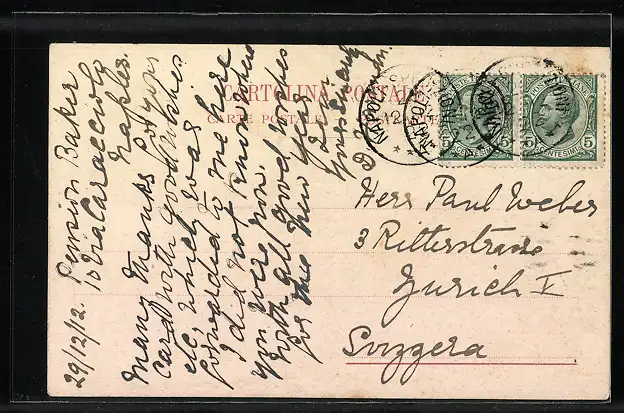 29/12/12. Pension Baker
10 Via Caracciolo
Naples.
Many thanks for your
card with good wishes
etc, which was
forwarded to me here
I did not know where
you were now.
With all good wishes
for the New Year
CARTOLINA POSTALE
CARTE POSTALE
NAPOLI
NAPOLI
POSTE ITALIANE
CENTESIMI 5
POSTE ITALIANE
CENTESIMI 5
Herr Paul Weber
3 Ritterstrasse
Zurich V
Svizzera